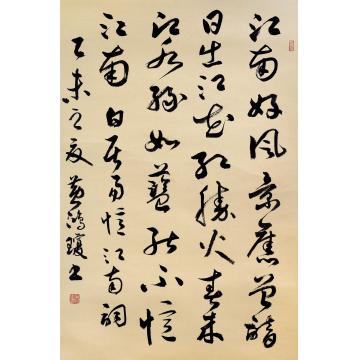 江南好風景舊曾諳
日出江花紅勝火春來
江水綠如藍能不憶
江南 白居易憶江南詞
乙未之夏黃鴻瓊書